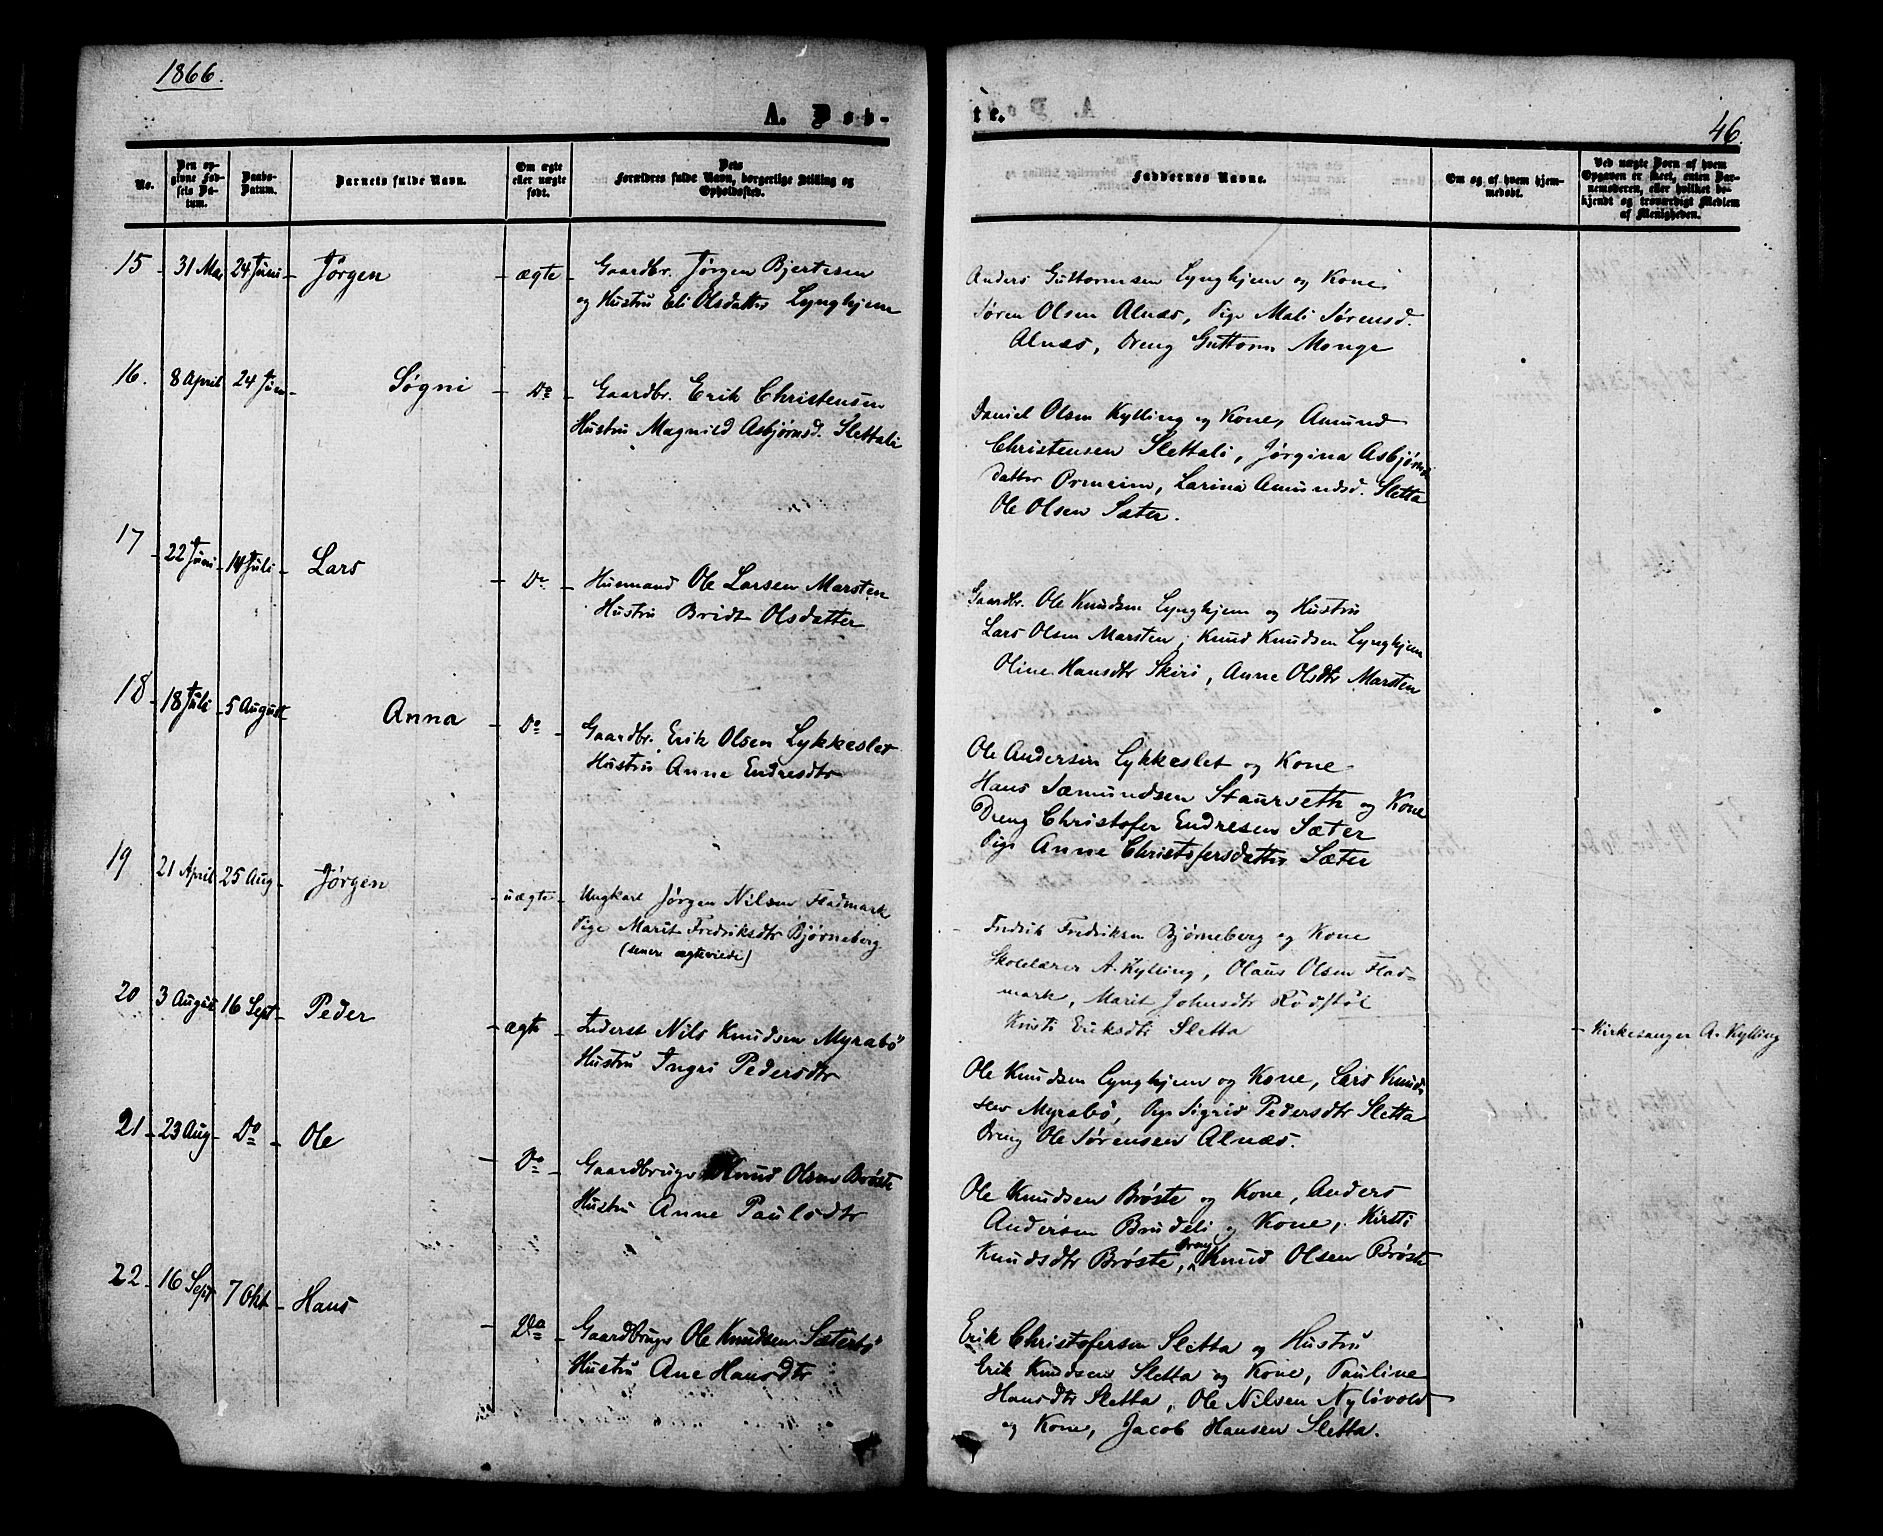 1866.
A. Døb-
No.
Den op-
givne Fød-
sels Da-
tum.
Daabs-
Datum.
Barnets fulde Navn.
Om ægte
eller uægte
født.
Dets
Forældres fulde Navn, borgerlige Stilling og
Opholdssted.
15 31 Mai 24 Juni Jørgen ægte Gaardbr. Jørgen Bjertesen
og Hustru Eli Olsdatter Lynghjem
16. 8 April 24 Juni Søgni Do Gaardbr. Erik Christensen
Hustru Magnild Asbjørnsd. Slettali
17 22 Juni 14 Juli Lars Do Huusmand Ole Larsen Marsten
Hustru Bridt Olsdatter
18 18 Juli 5 August Anna Do Gaardbr. Erik Olsen Lykkeslet
Hustru Anne Endresdtr
19 21 April 25 Aug Jørgen uægte Ungkarl Jørgen Nilsen Fladmark
Pige Marit Fredriksdtr Bjørneberg
(senere ægteviede)
20 3 August 16 Sept Peder ægte Inderst Nils Knudsen Myrabö
Hustru Ingri Pedersdtr
21 23 Aug Do Ole Do Gaardbruger Knud Olsen Brøste
Hustru Anne Paulsdtr
22 16 Sept 7 Okt Hans Do Gaardbruger Ole Knudsen Sæterbö
Hustru Ane Hansdtr
te.
46.
Faddernes Navne.
Om og af hvem hjem-
medøbt.
Ved uægte Born af hvem
Opgaven er skeet, enten Bar-
nemoderen, eller hvilket be-
kjendt og troværdigt Medlem
af Menigheden.
Anders Guttormsen Lynghjem og Kone,
Søren Olsen Alnæs, Pige Mali Sørensd.
Alnæs, Dreng Guttorm Monge
Daniel Olsen Kylling og Kone, Amund
Christensen Slettali, Jørgina Asbjørns
datter Ormeim, Larina Amundsd. Sletta
Ole Olsen Sæter.
Gaardbr. Ole Knudsen Lynghjem og Hustru
Lars Olsen Marsten, Knud Knudsen Lynghjem
Oline Hansdtr Skiri, Anne Olsdtr Marsten
Ole Andersen Lykkeslet og Kone
Hans Sæmundsen Staurseth og Kone
Dreng Christofer Endresen Sæter
Pige Anne Christofersdatter Sæter
Fredrik Fredriksen Bjørneberg og Kone
Skolelærer A. Kylling, Olaus Olsen Flad-
mark, Marit Johnsdtr Rødstøl
Kirsti Eriksdtr Sletta
Kirkesanger A. Kylling
Ole Knudsen Lynghjem og Kone, Lars Knud
sen Myrabö, Pige Sigrid Pedersdtr Sletta
Dreng Ole Sørensen Alnæs.
Ole Knudsen Brøste og Kone, Anders
Andersen Brudeli og Kone, Kirsti
Knudsdtr Brøste, Dreng Knud Olsen Brøste
Erik Christofersen Sletta og Hustru
Erik Knudsen Sletta og Kone, Pauline
Hansdtr Sletta, Ole Nilsen Nyløvold
og Kone, Jacob Hansen Sletta.